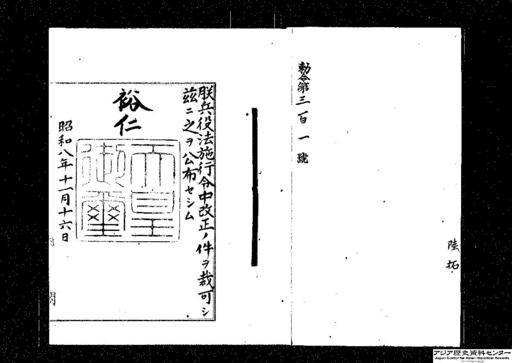 勅令第三百一號
陸拓
朕兵役法施行令中改正ノ件ヲ裁可シ
茲ニ之ヲ公布セシム
裕仁
天皇御璽
昭和八年十一月十六日
アジア歴史資料センター
Japan Center for Asian Historical Records